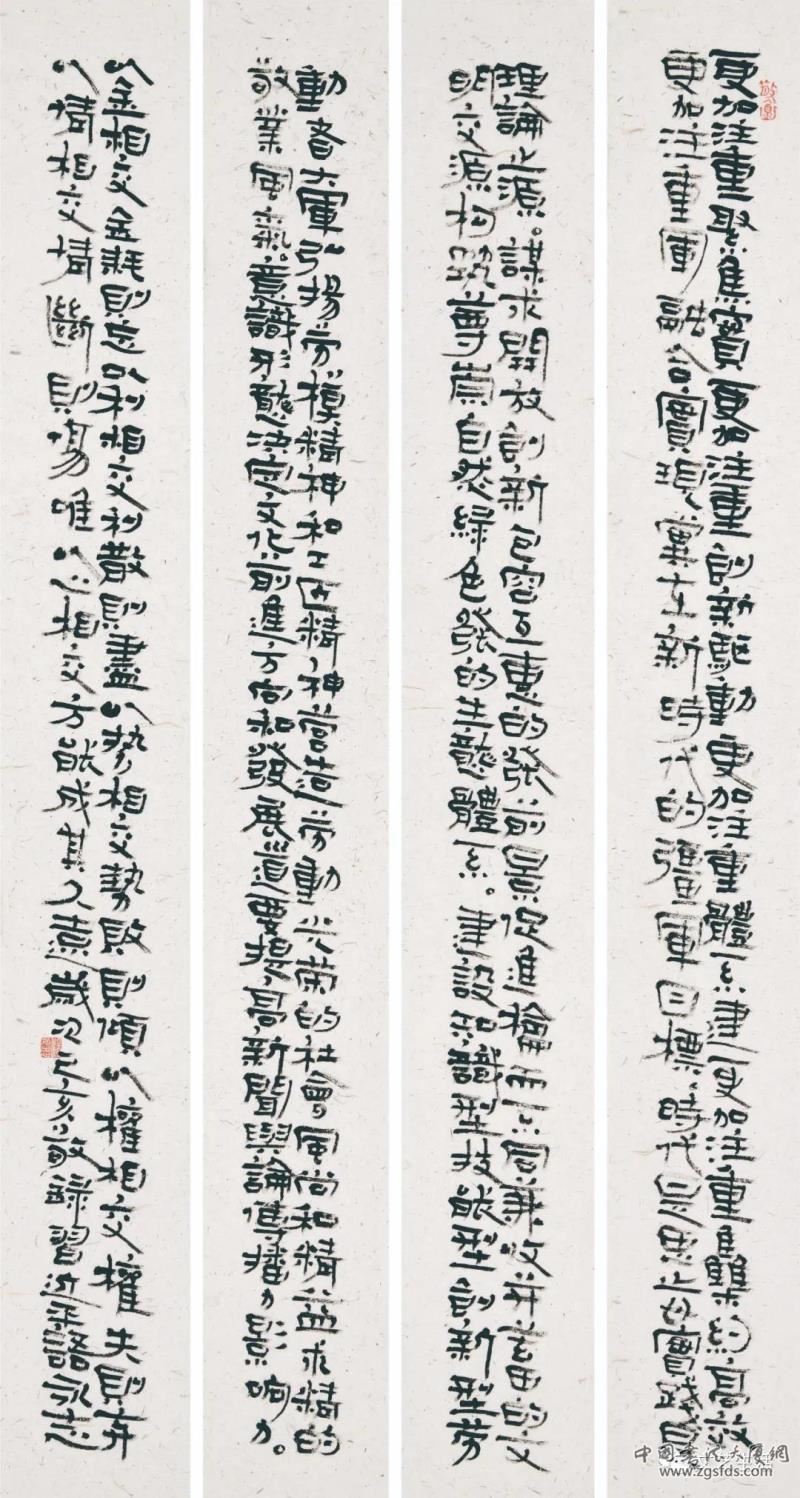 更加注重聚焦實更加注重創新驅動更加注重體系建更加注重集約高效
更加注重軍融合實現黨在新時代的强軍目標時代是思之母實踐是
理論之源。謀求開放創新包容互惠的發前景促進而不同兼收并蓄的文
明交源构筑尊崇自然緑色發的生態體系。建設知識型技能型創新型劳
動者大軍弘揚劳模精神和工匠精神營造劳動光荣的社會風尚和精益求精的
敬業風氣。意識形態决定文化前進方向和發展道要提高新聞輿論傳播力影响力。
以金相交金耗則忘以利相交利散則盡以势相交勢敗則傾以權相交權失則弃
以情相交情斷則傷唯以心相交方能成其久遠歲次己亥敬録習近平語永志
中國書法大厦網
www.zgsfds.com